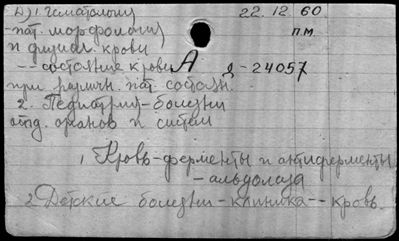 Д) 1. Гематология 22.12.60
пат. морфология пм
и физиол. крови
-- состояние крови А Д-24057
при различн. пат. состоян.
2. Педиатрия - болезни
отд. органов и систем
1. Кровь-ферменты и антиферменты
- альдолаза
2. Детские болезни - клиника -- кровь.